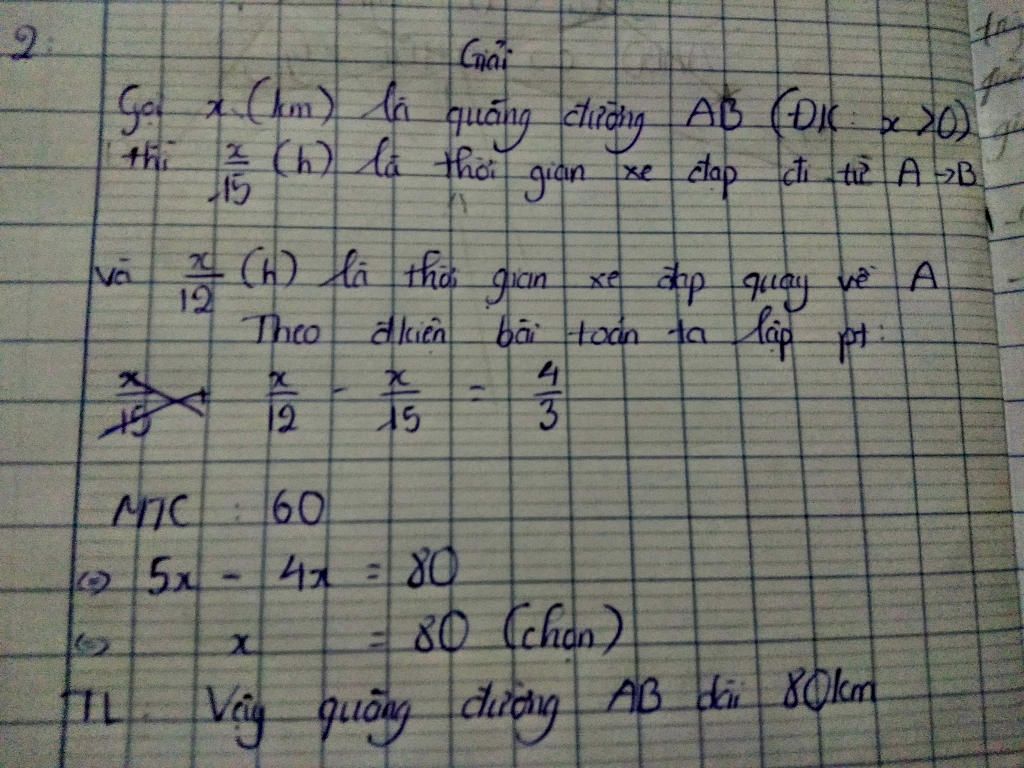 2:
Giải
Gọi x (km) là quãng đường AB (ĐK: x >0)
thì x/15 (h) là thời gian xe đạp đi từ A->B
và x/12 (h) là thời gian xe đạp quay về A
Theo đkiện bài toán ta lập pt:
x/12 - x/15 = 4/3
MTC : 60
<=> 5x - 4x = 80
<=> x = 80 (chọn)
TL: Vậy quãng đường AB dài 80km